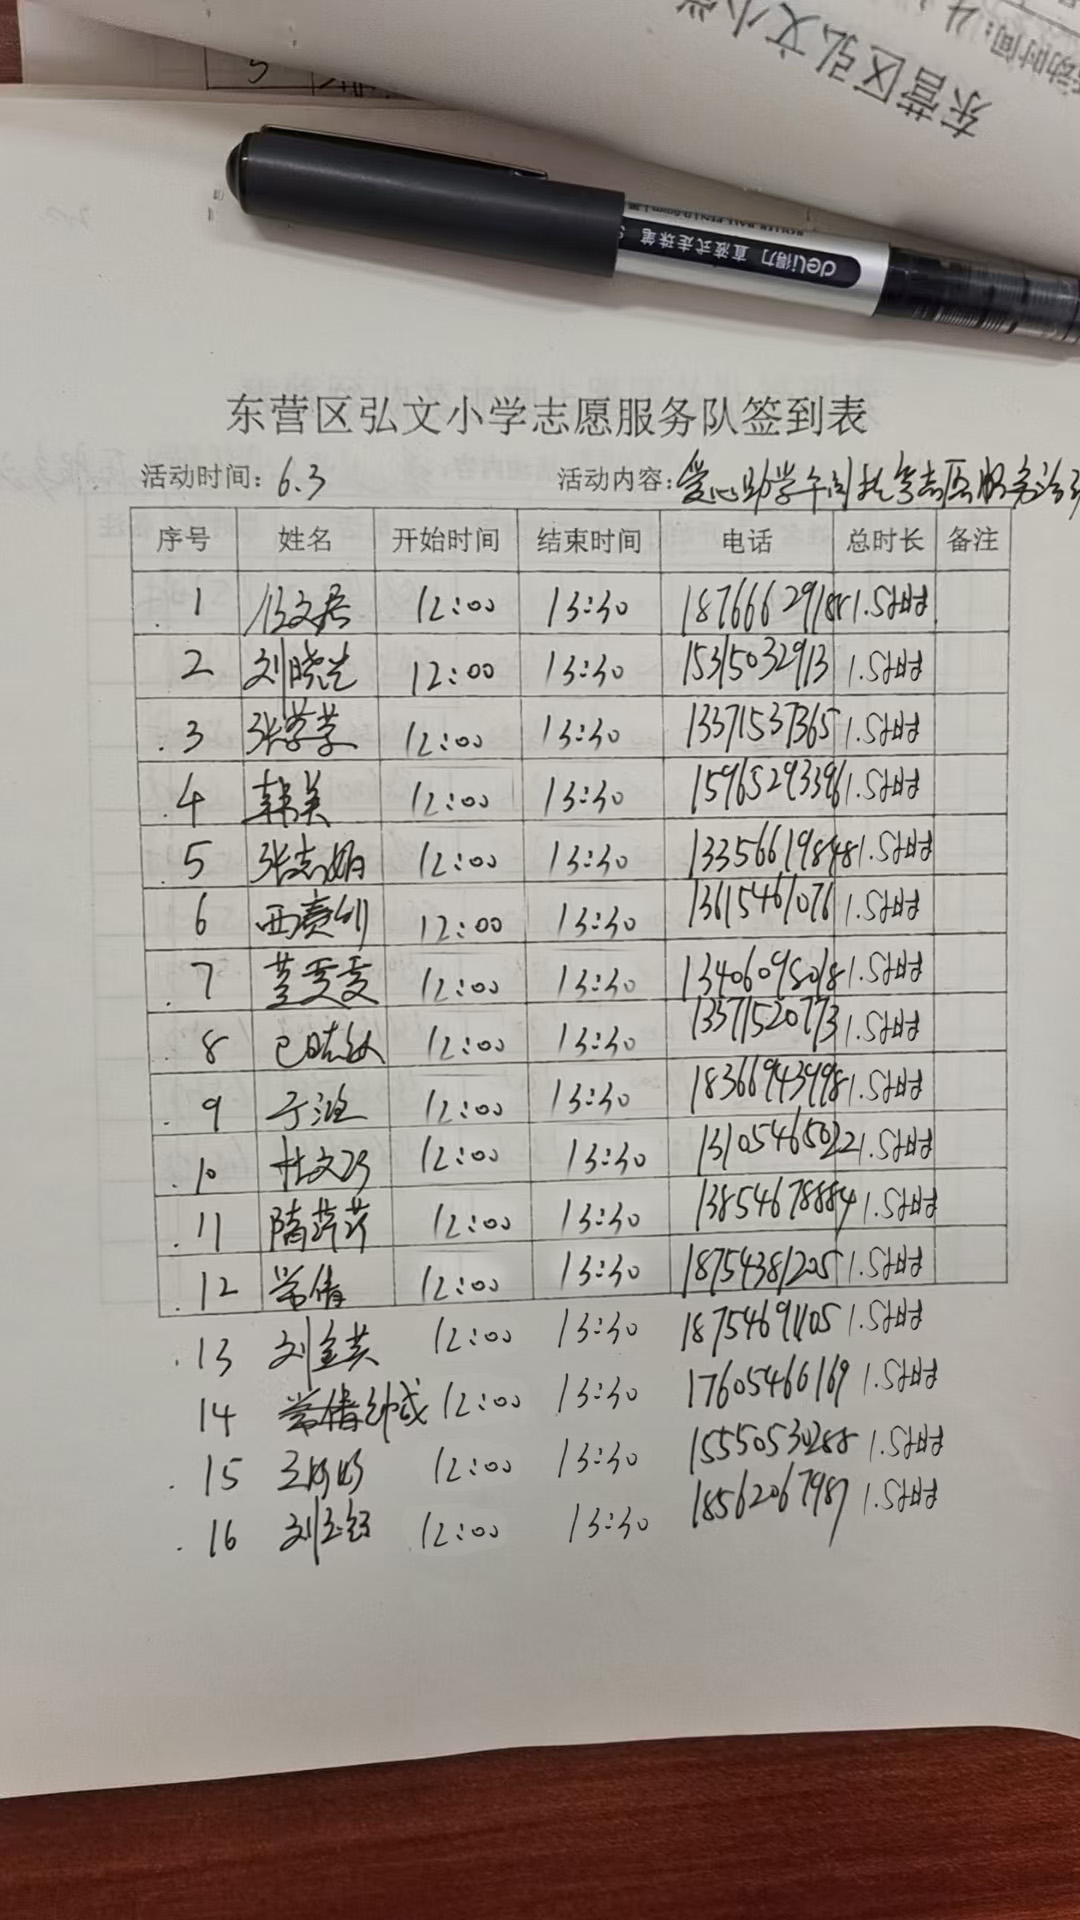 东营区弘文小学
活动时间: 4
5
deli得力 直液式走珠笔
ROLLER BALL PEN
东营区弘文小学志愿服务队签到表
活动时间: 6.3 活动内容: 爱心助学午间托管志愿服务活动
序号 姓名 开始时间 结束时间 电话 总时长 备注
1 12:00 13:30 1.5小时
2 刘晓光 12:00 13:30 15315032913 1.5小时
3 张莹莹 12:00 13:30 13371537365 1.5小时
4 韩美 12:00 13:30 15965293396 1.5小时
5 张志娟 12:00 13:30 13356619848 1.5小时
6 12:00 13:30 13615461076 1.5小时
7 12:00 13:30 13406098018 1.5小时
8 12:00 13:30 13371520773 1.5小时
9 12:00 13:30 18366943998 1.5小时
10 杜文巧 12:00 13:30 13105465022 1.5小时
11 隋芹芹 12:00 13:30 13854678884 1.5小时
12 常倩 12:00 13:30 18754381205 1.5小时
13 刘金英 12:00 13:30 18754691105 1.5小时
14 常倩 12:00 13:30 17605466169 1.5小时
15 12:00 13:30 15550530288 1.5小时
16 12:00 13:30 18562067987 1.5小时